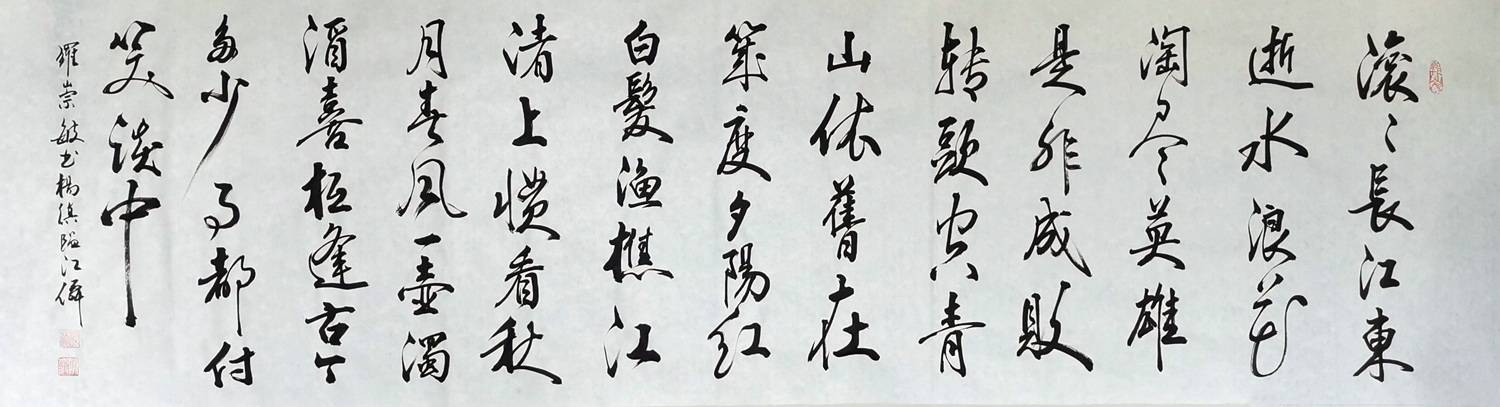 滚〻長江東
逝水浪花
淘尽英雄
是非成敗
转頭空青
山依舊在
幾度夕陽红
白髮渔樵江
渚上惯看秋
月春风一壺濁
酒喜相逢古今
多少事都付
笑談中
羅崇敏书楊慎临江僊